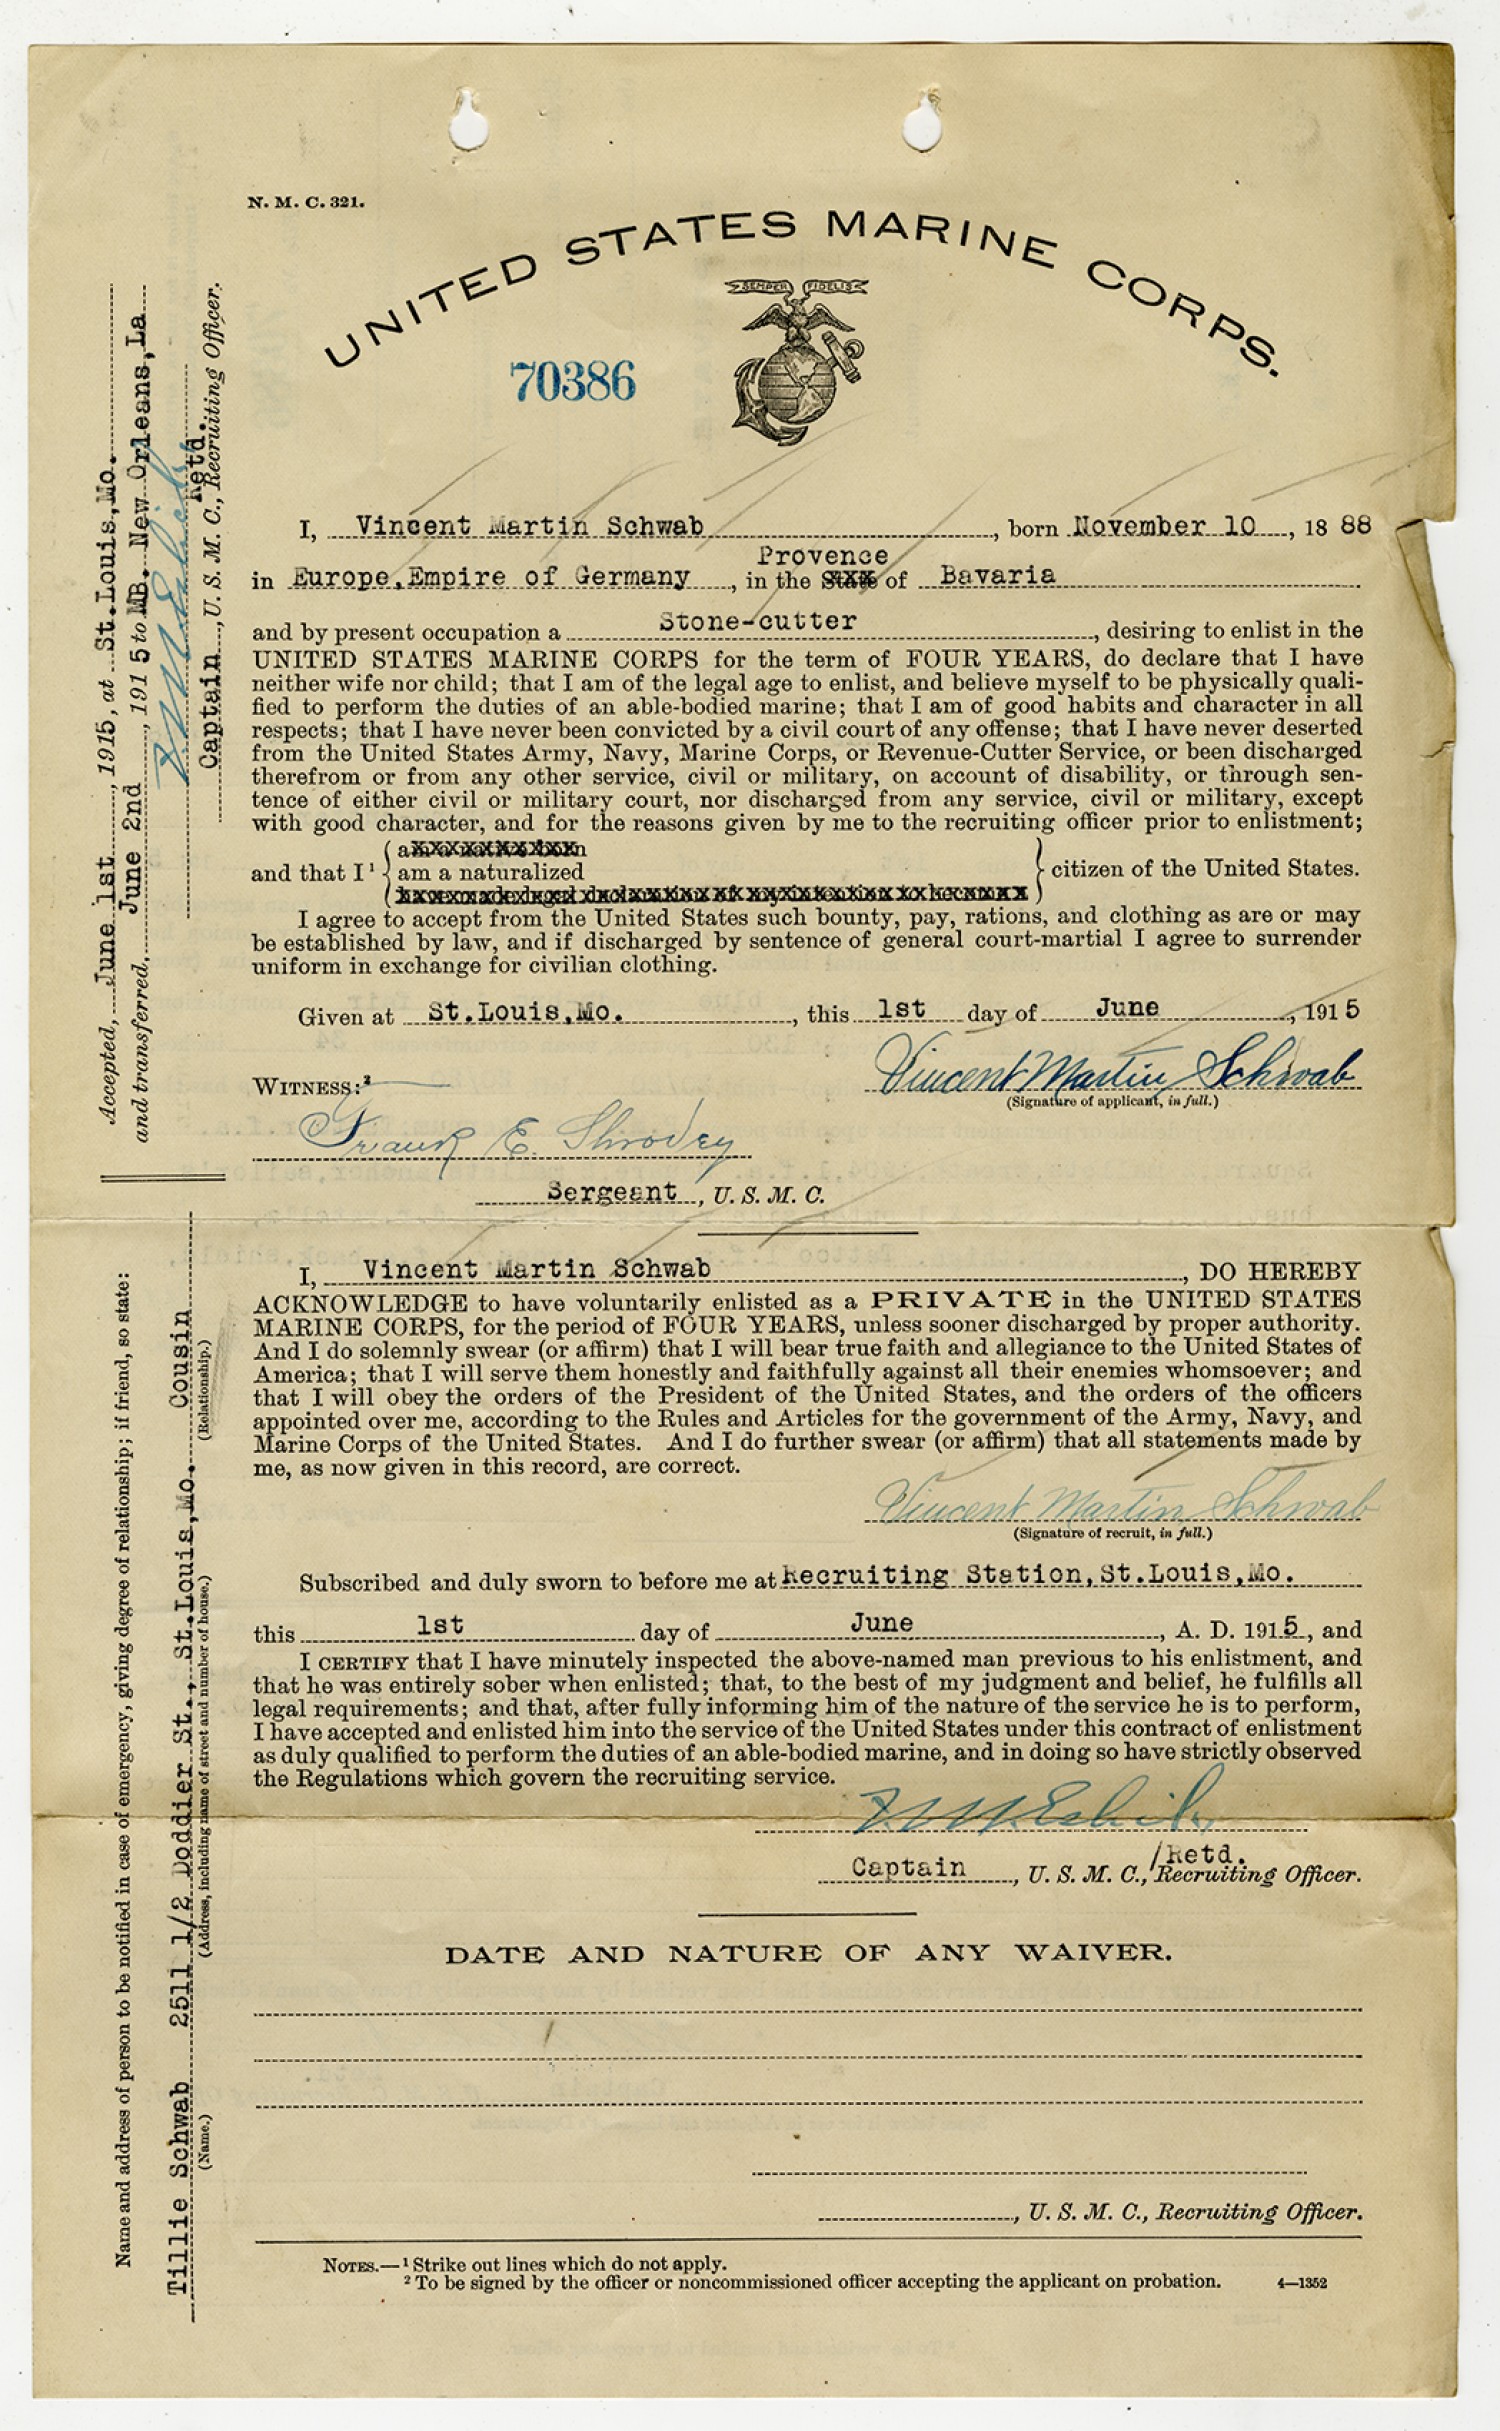 N. M. C. 321.
UNITED STATES MARINE CORPS.
SEMPER FIDELIS
70386
I, Vincent Martin Schwab, born November 10, 1888
Provence
in Europe, Empire of Germany, in the State of Bavaria
and by present occupation a Stone-cutter, desiring to enlist in the
UNITED STATES MARINE CORPS for the term of FOUR YEARS, do declare that I have
neither wife nor child; that I am of the legal age to enlist, and believe myself to be physically quali-
fied to perform the duties of an able-bodied marine; that I am of good habits and character in all
respects; that I have never been convicted by a civil court of any offense; that I have never deserted
from the United States Army, Navy, Marine Corps, or Revenue-Cutter Service, or been discharged
therefrom or from any other service, civil or military, on account of disability, or through sen-
tence of either civil or military court, nor discharged from any service, civil or military, except
with good character, and for the reasons given by me to the recruiting officer prior to enlistment;
am a native born
and that I¹ am a naturalized citizen of the United States.
have made legal declaration of my intention to become a
I agree to accept from the United States such bounty, pay, rations, and clothing as are or may
be established by law, and if discharged by sentence of general court-martial I agree to surrender
uniform in exchange for civilian clothing.
Given at St.Louis,Mo., this 1st day of June, 1915
Vincent Martin Schwab
WITNESS:²
(Signature of applicant, in full.)
Frank E. Shrodey
Sergeant, U. S. M. C.
I, Vincent Martin Schwab, DO HEREBY
ACKNOWLEDGE to have voluntarily enlisted as a PRIVATE in the UNITED STATES
MARINE CORPS, for the period of FOUR YEARS, unless sooner discharged by proper authority.
And I do solemnly swear (or affirm) that I will bear true faith and allegiance to the United States of
America; that I will serve them honestly and faithfully against all their enemies whomsoever; and
that I will obey the orders of the President of the United States, and the orders of the officers
appointed over me, according to the Rules and Articles for the government of the Army, Navy, and
Marine Corps of the United States. And I do further swear (or affirm) that all statements made by
me, as now given in this record, are correct.
Vincent Martin Schwab
(Signature of recruit, in full.)
Subscribed and duly sworn to before me at Recruiting Station, St.Louis,Mo.
this 1st day of June, A. D. 1915, and
I CERTIFY that I have minutely inspected the above-named man previous to his enlistment, and
that he was entirely sober when enlisted; that, to the best of my judgment and belief, he fulfills all
legal requirements; and that, after fully informing him of the nature of the service he is to perform,
I have accepted and enlisted him into the service of the United States under this contract of enlistment
as duly qualified to perform the duties of an able-bodied marine, and in doing so have strictly observed
the Regulations which govern the recruiting service.
/Retd.
Captain, U. S. M. C., Recruiting Officer.
DATE AND NATURE OF ANY WAIVER.
, U. S. M. C., Recruiting Officer.
NOTES.—¹ Strike out lines which do not apply.
² To be signed by the officer or noncommissioned officer accepting the applicant on probation. 4—1352
Accepted, June 1st, 1915, at St.Louis,Mo.
and transferred, June 2nd, 1915 to MB. New Orleans,La
Retd.
Captain, U. S. M. C., Recruiting Officer.
Name and address of person to be notified in case of emergency, giving degree of relationship; if friend, so state:
Tillie Schwab 2511 1/2 Doddier St., St.Louis,Mo. Cousin
(Name.) (Address, including name of street and number of house.) (Relationship.)